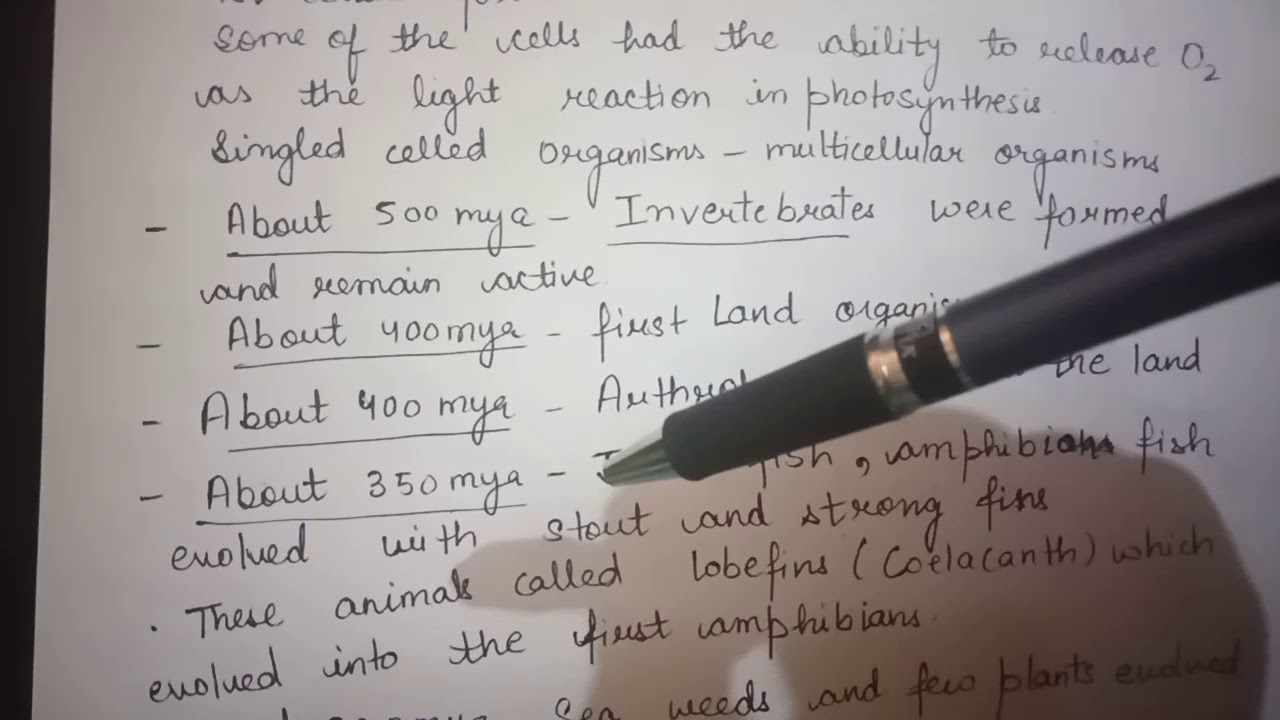 some of the cells had the ability to release O₂
as the light reaction in photosynthesis
Singled celled organisms - multicellular organisms
- About 500 mya - Invertebrates were formed
and remain active
- About 400mya - first Land
- About 400 mya - the land
- About 350 mya - , amphibians fish
evolved with stout and strong fins
. These animals called lobefins (Coelacanth) which
evolved into the first amphibians.
Sea weeds and few plants evolved